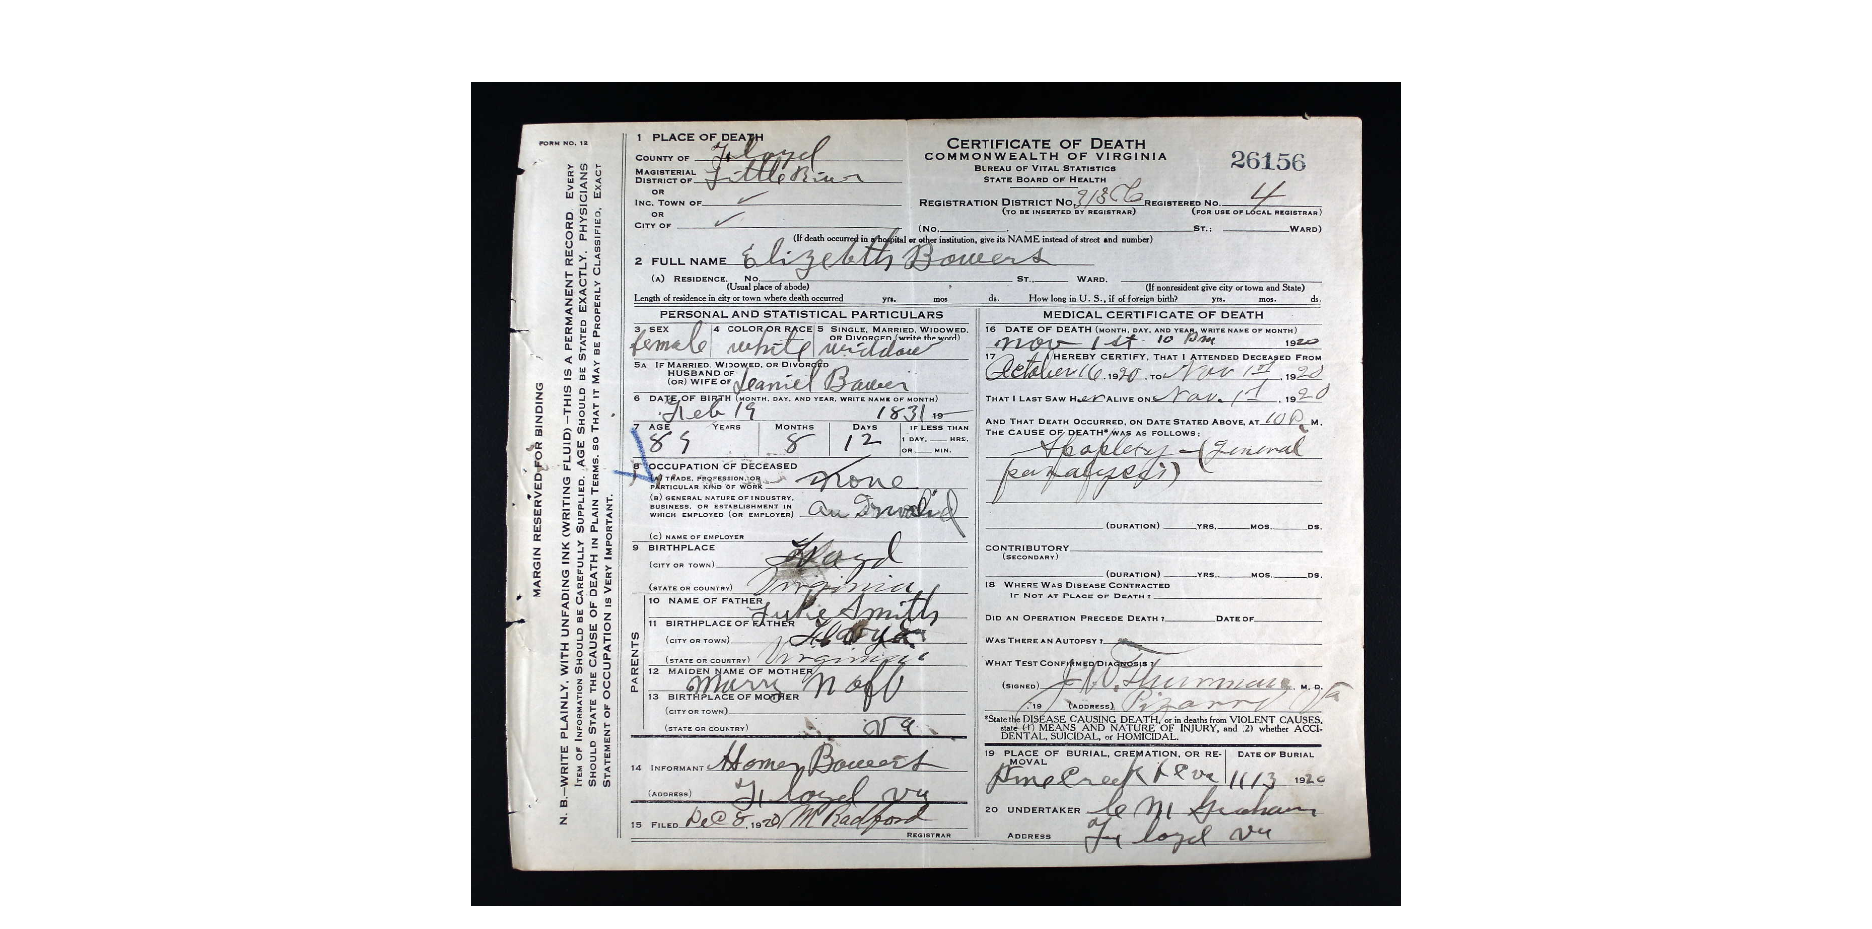 FORM NO. 12
MARGIN RESERVED FOR BINDING
N. B.—WRITE PLAINLY, WITH UNFADING INK (WRITING FLUID)—THIS IS A PERMANENT RECORD. EVERY
ITEM OF INFORMATION SHOULD BE CAREFULLY SUPPLIED. AGE SHOULD BE STATED EXACTLY. PHYSICIANS
SHOULD STATE THE CAUSE OF DEATH IN PLAIN TERMS, SO THAT IT MAY BE PROPERLY CLASSIFIED. EXACT
STATEMENT OF OCCUPATION IS VERY IMPORTANT.
CERTIFICATE OF DEATH
COMMONWEALTH OF VIRGINIA
BUREAU OF VITAL STATISTICS
STATE BOARD OF HEALTH
26156
1 PLACE OF DEATH
COUNTY OF Floyd
MAGISTERIAL
DISTRICT OF Little River
OR
INC. TOWN OF ✓
OR
CITY OF ✓
REGISTRATION DISTRICT NO. 313C REGISTERED NO. 4
(TO BE INSERTED BY REGISTRAR) (FOR USE OF LOCAL REGISTRAR)
(NO. ST.; WARD)
(If death occurred in a hospital or other institution, give its NAME instead of street and number)
2 FULL NAME Elizebeth Bowers
(A) RESIDENCE. NO. ST., WARD.
(Usual place of abode) (If nonresident give city or town and State)
Length of residence in city or town where death occurred yrs. mos. ds. How long in U. S., if of foreign birth? yrs. mos. ds.
PERSONAL AND STATISTICAL PARTICULARS
3 SEX 4 COLOR OR RACE 5 SINGLE, MARRIED, WIDOWED,
OR DIVORCED (write the word)
female white widdow
5A IF MARRIED, WIDOWED, OR DIVORCED
HUSBAND OF
(OR) WIFE OF Daniel Bower
6 DATE OF BIRTH (MONTH, DAY, AND YEAR, WRITE NAME OF MONTH)
Feb 19 1831 19
7 AGE YEARS MONTHS DAYS IF LESS THAN
89 8 12 1 DAY, HRS.
OR MIN.
8 OCCUPATION OF DECEASED
(A) TRADE, PROFESSION, OR
PARTICULAR KIND OF WORK None
(B) GENERAL NATURE OF INDUSTRY,
BUSINESS, OR ESTABLISHMENT IN
WHICH EMPLOYED (OR EMPLOYER) an Invalid
(C) NAME OF EMPLOYER
9 BIRTHPLACE
(CITY OR TOWN) Floyd
(STATE OR COUNTRY) Virginia
PARENTS
10 NAME OF FATHER Luke Smith
11 BIRTHPLACE OF FATHER
(CITY OR TOWN) Floyd
(STATE OR COUNTRY) Virginia
12 MAIDEN NAME OF MOTHER
13 BIRTHPLACE OF MOTHER
(CITY OR TOWN)
(STATE OR COUNTRY) Va
14 INFORMANT Homer Bowers
(ADDRESS) Floyd va
15 FILED Dec 8, 1920 M Radford
REGISTRAR
MEDICAL CERTIFICATE OF DEATH
16 DATE OF DEATH (MONTH, DAY, AND YEAR, WRITE NAME OF MONTH)
Nov 1st 10 Pm 1920
17 I HEREBY CERTIFY, THAT I ATTENDED DECEASED FROM
October 16, 1920, TO Nov 1st, 1920
THAT I LAST SAW Her ALIVE ON Nov. 1st, 1920
AND THAT DEATH OCCURRED, ON DATE STATED ABOVE, AT 10 P. M.
THE CAUSE OF DEATH* WAS AS FOLLOWS:
(General
(DURATION) YRS. MOS. DS.
CONTRIBUTORY
(SECONDARY)
(DURATION) YRS. MOS. DS.
18 WHERE WAS DISEASE CONTRACTED
IF NOT AT PLACE OF DEATH?
DID AN OPERATION PRECEDE DEATH? DATE OF
WAS THERE AN AUTOPSY?
WHAT TEST CONFIRMED DIAGNOSIS?
(SIGNED) J. W. Thurman, M. D.
, 19 (ADDRESS) Pizarro Va
*State the DISEASE CAUSING DEATH, or in deaths from VIOLENT CAUSES,
state (1) MEANS AND NATURE OF INJURY, and (2) whether ACCI-
DENTAL, SUICIDAL, or HOMICIDAL.
19 PLACE OF BURIAL, CREMATION, OR RE-
MOVAL DATE OF BURIAL
Pine Creek 11/3 1920
20 UNDERTAKER C M Graham
ADDRESS Floyd va